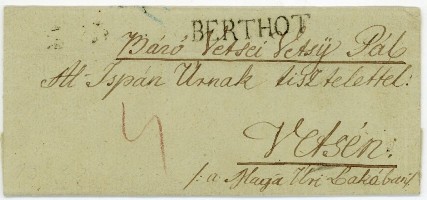 BERTHOT
Báró Vetsei Vetsÿ Pál
Al-Ispán Úrnak tisztelettel:
Vetsén:
/: a Maga Úri Lakában